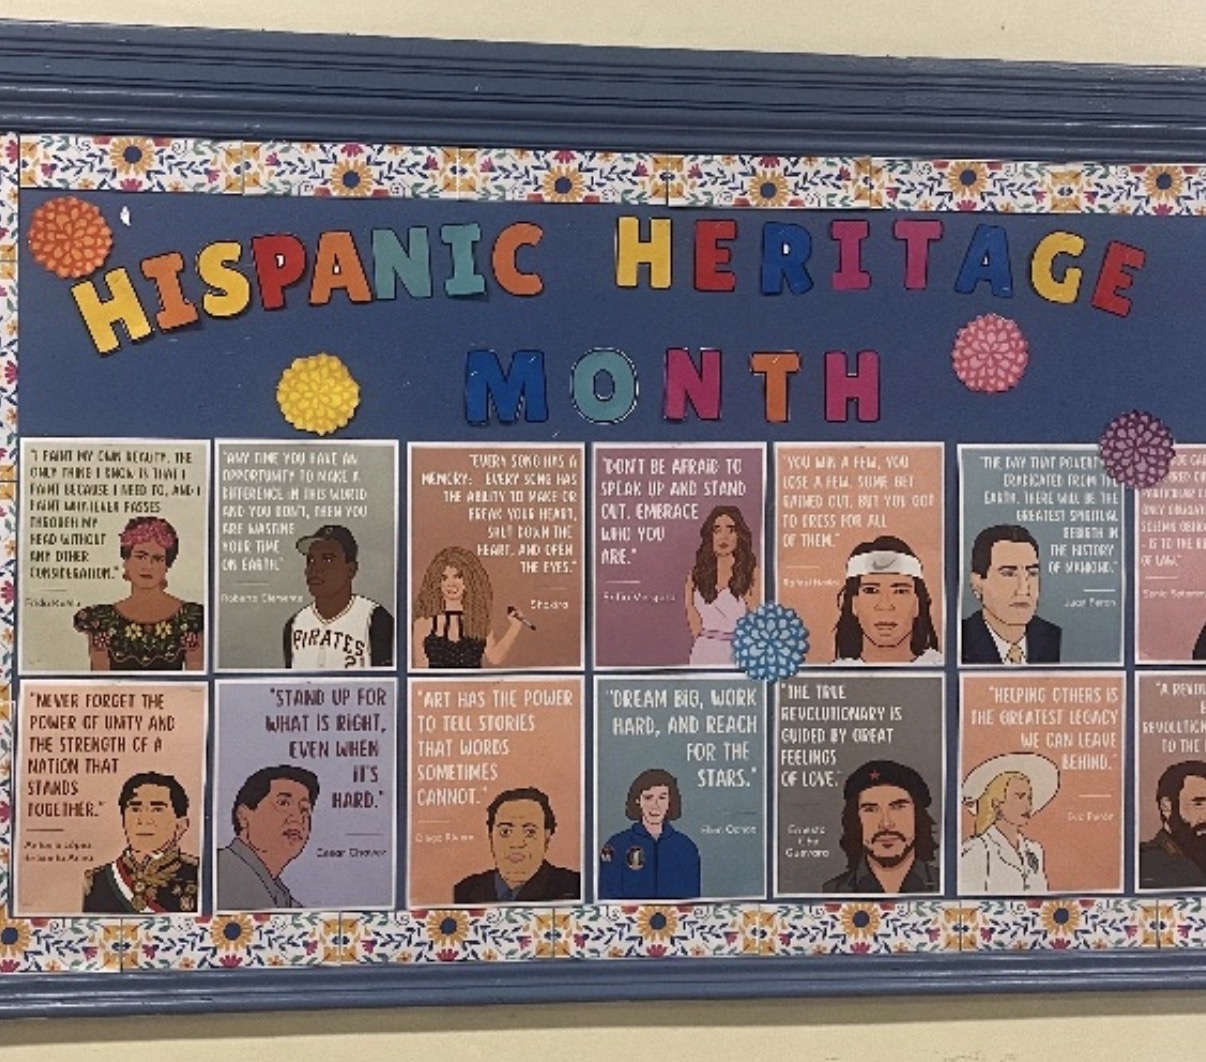 HISPANIC HERITAGE
MONTH
"I PAINT MY OWN REALITY. THE
ONLY THING I KNOW IS THAT I
PAINT BECAUSE I NEED TO, AND I
PAINT WHATEVER PASSES
THROUGH MY
HEAD WITHOUT
ANY OTHER
CONSIDERATION."
Frida Kahlo
"ANY TIME YOU HAVE AN
OPPORTUNITY TO MAKE A
DIFFERENCE IN THIS WORLD
AND YOU DON'T, THEN YOU
ARE WASTING
YOUR TIME
ON EARTH."
Roberto Clemente
PIRATES
2
"EVERY SONG HAS A
MEMORY; EVERY SONG HAS
THE ABILITY TO MAKE OR
BREAK YOUR HEART,
SHUT DOWN THE
HEART, AND OPEN
THE EYES."
Shakira
"DON'T BE AFRAID TO
SPEAK UP AND STAND
OUT. EMBRACE
WHO YOU
ARE."
Sofia Vergara
"YOU WIN A FEW, YOU
LOSE A FEW. SOME GET
RAINED OUT. BUT YOU GOT
TO DRESS FOR ALL
OF THEM."
Rafael Nadal
"THE DAY THAT POVERTY
ERADICATED FROM THE
EARTH, THERE WILL BE THE
GREATEST SPIRITUAL
REBIRTH IN
THE HISTORY
OF MANKIND."
Juan Peron
PARTICULAR
ONLY
SOLEMN
- IS TO THE
OF LAW."
Sonia
"NEVER FORGET THE
POWER OF UNITY AND
THE STRENGTH OF A
NATION THAT
STANDS
TOGETHER."
Antonio López
de Santa Anna
"STAND UP FOR
WHAT IS RIGHT,
EVEN WHEN
IT'S
HARD."
Cesar Chavez
"ART HAS THE POWER
TO TELL STORIES
THAT WORDS
SOMETIMES
CANNOT."
Diego Rivera
"DREAM BIG, WORK
HARD, AND REACH
FOR THE
STARS."
Ellen Ochoa
"THE TRUE
REVOLUTIONARY IS
GUIDED BY GREAT
FEELINGS
OF LOVE."
Ernesto
Che
Guevara
"HELPING OTHERS IS
THE GREATEST LEGACY
WE CAN LEAVE
BEHIND."
Eva Perón
"A
REVOLUTION
TO THE